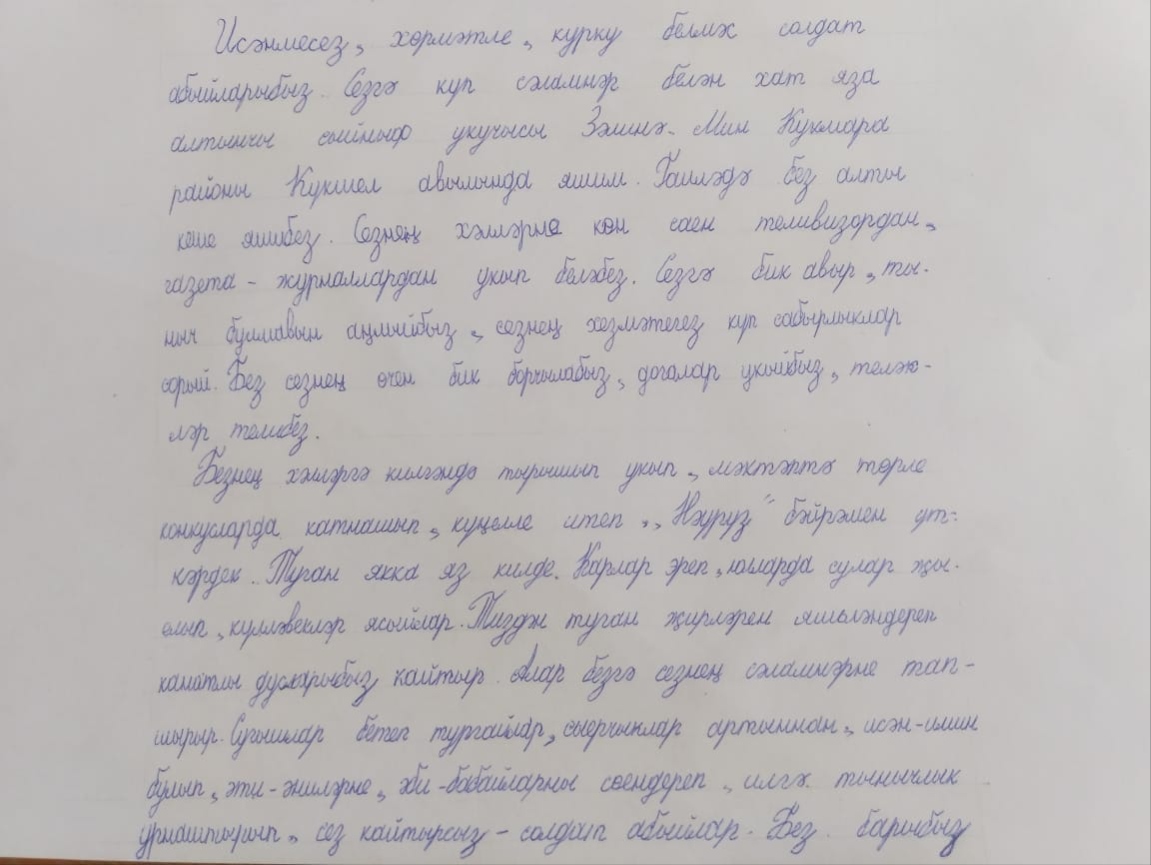 Исәнмесез, хөрмәтле, курку белмәс солдат
абыйларыбыз. Сезгә күп сәламнәр белән хат яза
алтынчы сыйныф укучысы Зәминә. Мин Кукмара
районы Күкшел авылында яшим. Гаиләдә без алты
кеше яшибез. Сезнең хәлләрне көн саен теливизордан,
газета - журналлардан укып беләбез. Сезгә бик авыр, ты-
ныч булмавын аңлыйбыз, сезнең хезмәтегез күп сабырлыклар
сорый. Без сезнең өчен бик борчылабыз, догалар укыйбыз, теләк-
ләр телибез.
Безнең хәлләргә килгәндә тырышып укып, мәктәптә төрле
конкусларда катнашып, күңелле итеп, „Нәүрүз" бәйрәмен үт-
кәрдек. Туган якка яз килде. Карлар эреп, юлларда сулар җы-
елып, күлләвекләр ясыйлар. Тиздән туган җирләрен яшьләндереп
канатлы дусларыбыз кайтыр. Алар безгә сезнең сәламнәрне тап-
шырыр. Сугышлар бетеп тургайлар, сыерчыклар артыннан, исән-имин
булып, әти-әниләрне, әби-бабайларны сөендереп, илгә тынычлык
урнаштырып, сез кайтырсыз - солдат абыйлар. Без барыбыз